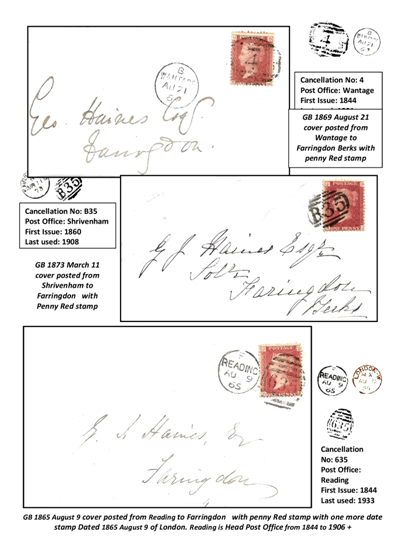 B
WANTAGE
AU 21
69
4
Geo. Haines Esq.
Faringdon.
Cancellation No: 4
Post Office: Wantage
First Issue: 1844
GB 1869 August 21
cover posted from
Wantage to
Farringdon Berks with
penny Red stamp
B35
Cancellation No: B35
Post Office: Shrivenham
First Issue: 1860
Last used: 1908
GB 1873 March 11
cover posted from
Shrivenham to
Farringdon with
Penny Red stamp
B35
ONE PENNY
G J Haines Esqre
Solr
Faringdon
Berks
F
READING
AU 9
65
POSTAGE
G. J. Haines, Esq
Faringdon
READING
AU 9
65
LONDON
635
Cancellation
No: 635
Post Office:
Reading
First Issue: 1844
Last used: 1933
GB 1865 August 9 cover posted from Reading to Farringdon with penny Red stamp with one more date
stamp Dated 1865 August 9 of London. Reading is Head Post Office from 1844 to 1906 +